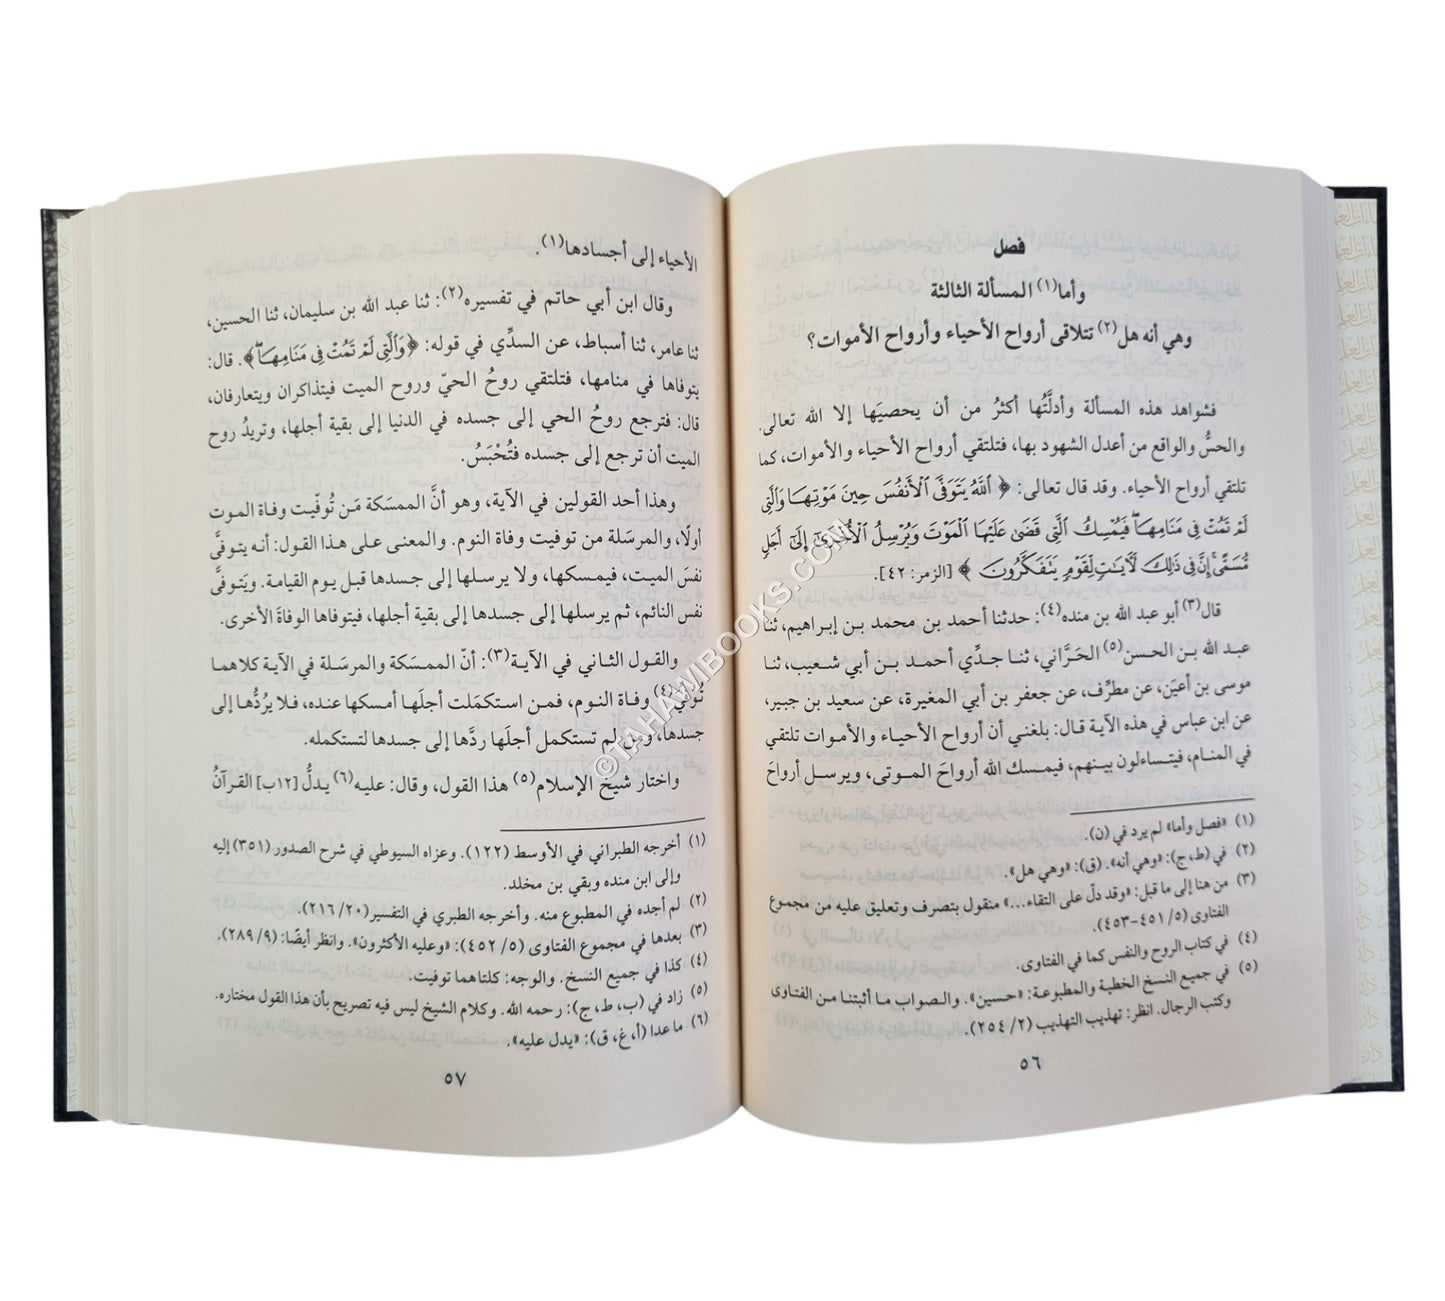 فصل
وأما(١) المسألة الثالثة
وهي أنه هل(٢) تتلاقى أرواح الأحياء وأرواح الأموات؟
فشواهد هذه المسألة وأدلَّتُها أكثرُ من أن يحصيَها إلا الله تعالى.
والحسُّ والواقع من أعدل الشهود بها، فتلتقي أرواح الأحياء والأموات، كما
تلتقي أرواح الأحياء. وقد قال تعالى: ﴿ ٱللَّهُ يَتَوَفَّى ٱلْأَنفُسَ حِينَ مَوْتِهَا وَٱلَّتِى
لَمْ تَمُتْ فِى مَنَامِهَا ۖ فَيُمْسِكُ ٱلَّتِى قَضَىٰ عَلَيْهَا ٱلْمَوْتَ وَيُرْسِلُ ٱلْأُخْرَىٰٓ إِلَىٰٓ أَجَلٍ
مُّسَمًّى ۚ إِنَّ فِى ذَٰلِكَ لَآيَاتٍ لِّقَوْمٍ يَتَفَكَّرُونَ ﴾ [الزمر: ٤٢].
قال(٣) أبو عبد الله بن منده(٤): حدثنا أحمد بن محمد بن إبراهيم، ثنا
عبد الله بن الحسن(٥) الحَرَّاني، ثنا جدِّي أحمد بن أبي شعيب، ثنا
موسى بن أعيَن، عن مطرِّف، عن جعفر بن أبي المغيرة، عن سعيد بن جبير،
عن ابن عباس في هذه الآية قال: بلغني أن أرواح الأحياء والأموات تلتقي
في المنام، فيتساءلون بينهم، فيمسك الله أرواحَ الموتى، ويرسل أرواحَ
(١) «فصل وأما» لم يرد في (ن).
(٢) في (ط، ج): «وهي أنه». (ق): «وهي هل».
(٣) من هنا إلى ما قبل: «وقد دلّ على التقاء...» منقول بتصرف وتعليق عليه من مجموع
الفتاوى (٥/ ٤٥١-٤٥٣).
(٤) في كتاب الروح والنفس كما في الفتاوى.
(٥) في جميع النسخ الخطية والمطبوعة: «حسين». والصواب ما أثبتنا من الفتاوى
وكتب الرجال. انظر: تهذيب التهذيب (٢/ ٢٥٤).
٥٦
الأحياء إلى أجسادها(١).
وقال ابن أبي حاتم في تفسيره(٢): ثنا عبد الله بن سليمان، ثنا الحسين،
ثنا عامر، ثنا أسباط، عن السدِّي في قوله: ﴿وَٱلَّتِى لَمْ تَمُتْ فِى مَنَامِهَا ۖ﴾. قال:
يتوفاها في منامها، فتلتقي روحُ الحيّ وروح الميت فيتذاكران ويتعارفان،
قال: فترجع روحُ الحي إلى جسده في الدنيا إلى بقية أجلها، وتريدُ روح
الميت أن ترجع إلى جسده فتُحْبَسُ.
وهذا أحد القولين في الآية، وهو أنَّ الممسَكة مَن تُوفّيت وفاة الموت
أولًا، والمرسَلة من توفيت وفاة النوم. والمعنى على هذا القول: أنه يتوفَّى
نفسَ الميت، فيمسكها، ولا يرسلها إلى جسدها قبل يوم القيامة. ويَتوفَّى
نفس النائم، ثم يرسلها إلى جسدها إلى بقية أجلها، فيتوفاها الوفاةَ الأخرى.
والقول الثاني في الآية(٣): أنّ الممسَكة والمرسَلة في الآية كلاهما
تُوفي(٤) وفاة النوم، فمن استكمَلت أجلَها أمسكها عنده، فلا يرُدُّها إلى
جسدها، ومن لم تستكمل أجلَها ردَّها إلى جسدها لتستكمله.
واختار شيخ الإسلام(٥) هذا القول، وقال: عليه(٦) يدلُّ [١٢ب] القرآنُ
(١) أخرجه الطبراني في الأوسط (١٢٢). وعزاه السيوطي في شرح الصدور (٣٥١) إليه
وإلى ابن منده وبقي بن مخلد.
(٢) لم أجده في المطبوع منه. وأخرجه الطبري في التفسير (٢٠/ ٢١٦).
(٣) بعدها في مجموع الفتاوى (٥/ ٤٥٢): «وعليه الأكثرون». وانظر أيضًا: (٩/ ٢٨٩).
(٤) كذا في جميع النسخ. والوجه: كلتاهما توفيت.
(٥) زاد في (ب، ط، ج): رحمه الله. وكلام الشيخ ليس فيه تصريح بأن هذا القول مختاره.
(٦) ما عدا (أ، غ، ق): «يدل عليه».
٥٧
©TAHAWIBOOKS.COM